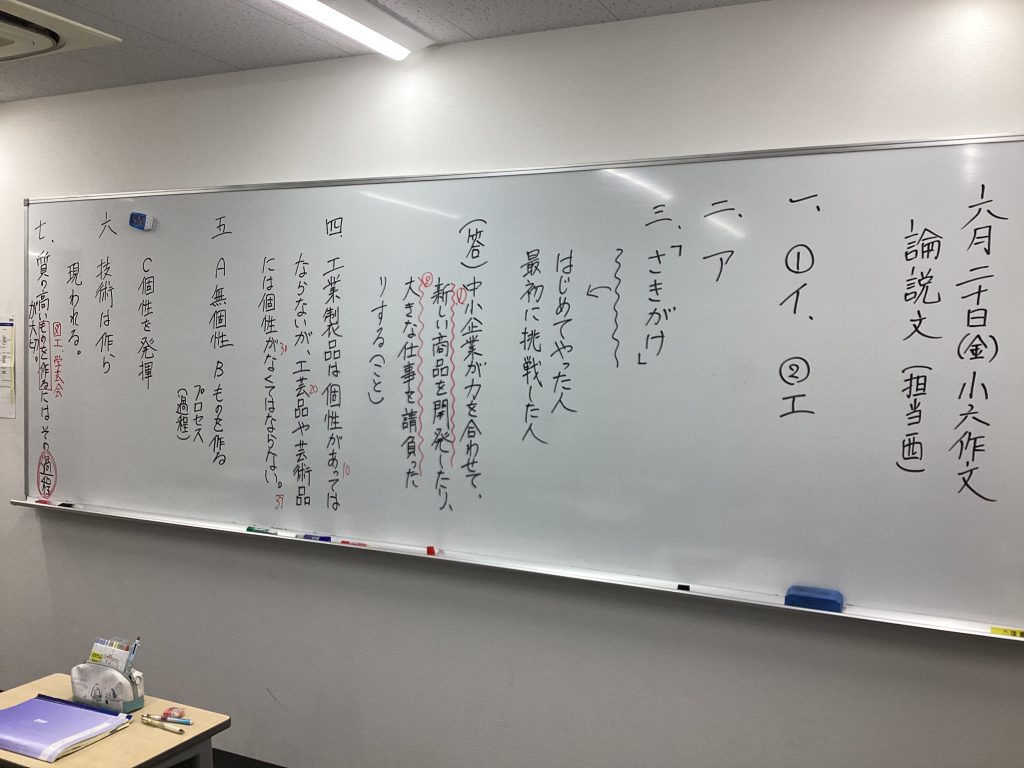 六月二十日(金)小六作文
論説文(担当酉)
一、①イ、②エ
二、ア
三、「さきがけ」
はじめてやった人
最初に挑戦した人
(答)中小企業が力を合わせて、
①新しい商品を開発したり、
②大きな仕事を請負った
りする(こと)
四 工業製品は個性があっては10
ならないが、工20芸品や芸術品
には個性が30なくてはならない。35
五 A無個性 Bものを作る
プロセス
(過程)
C個性を発揮
六 技術は作ら
現われる。
七、質の高いものを作るにはその過程
が大切。
学芸会